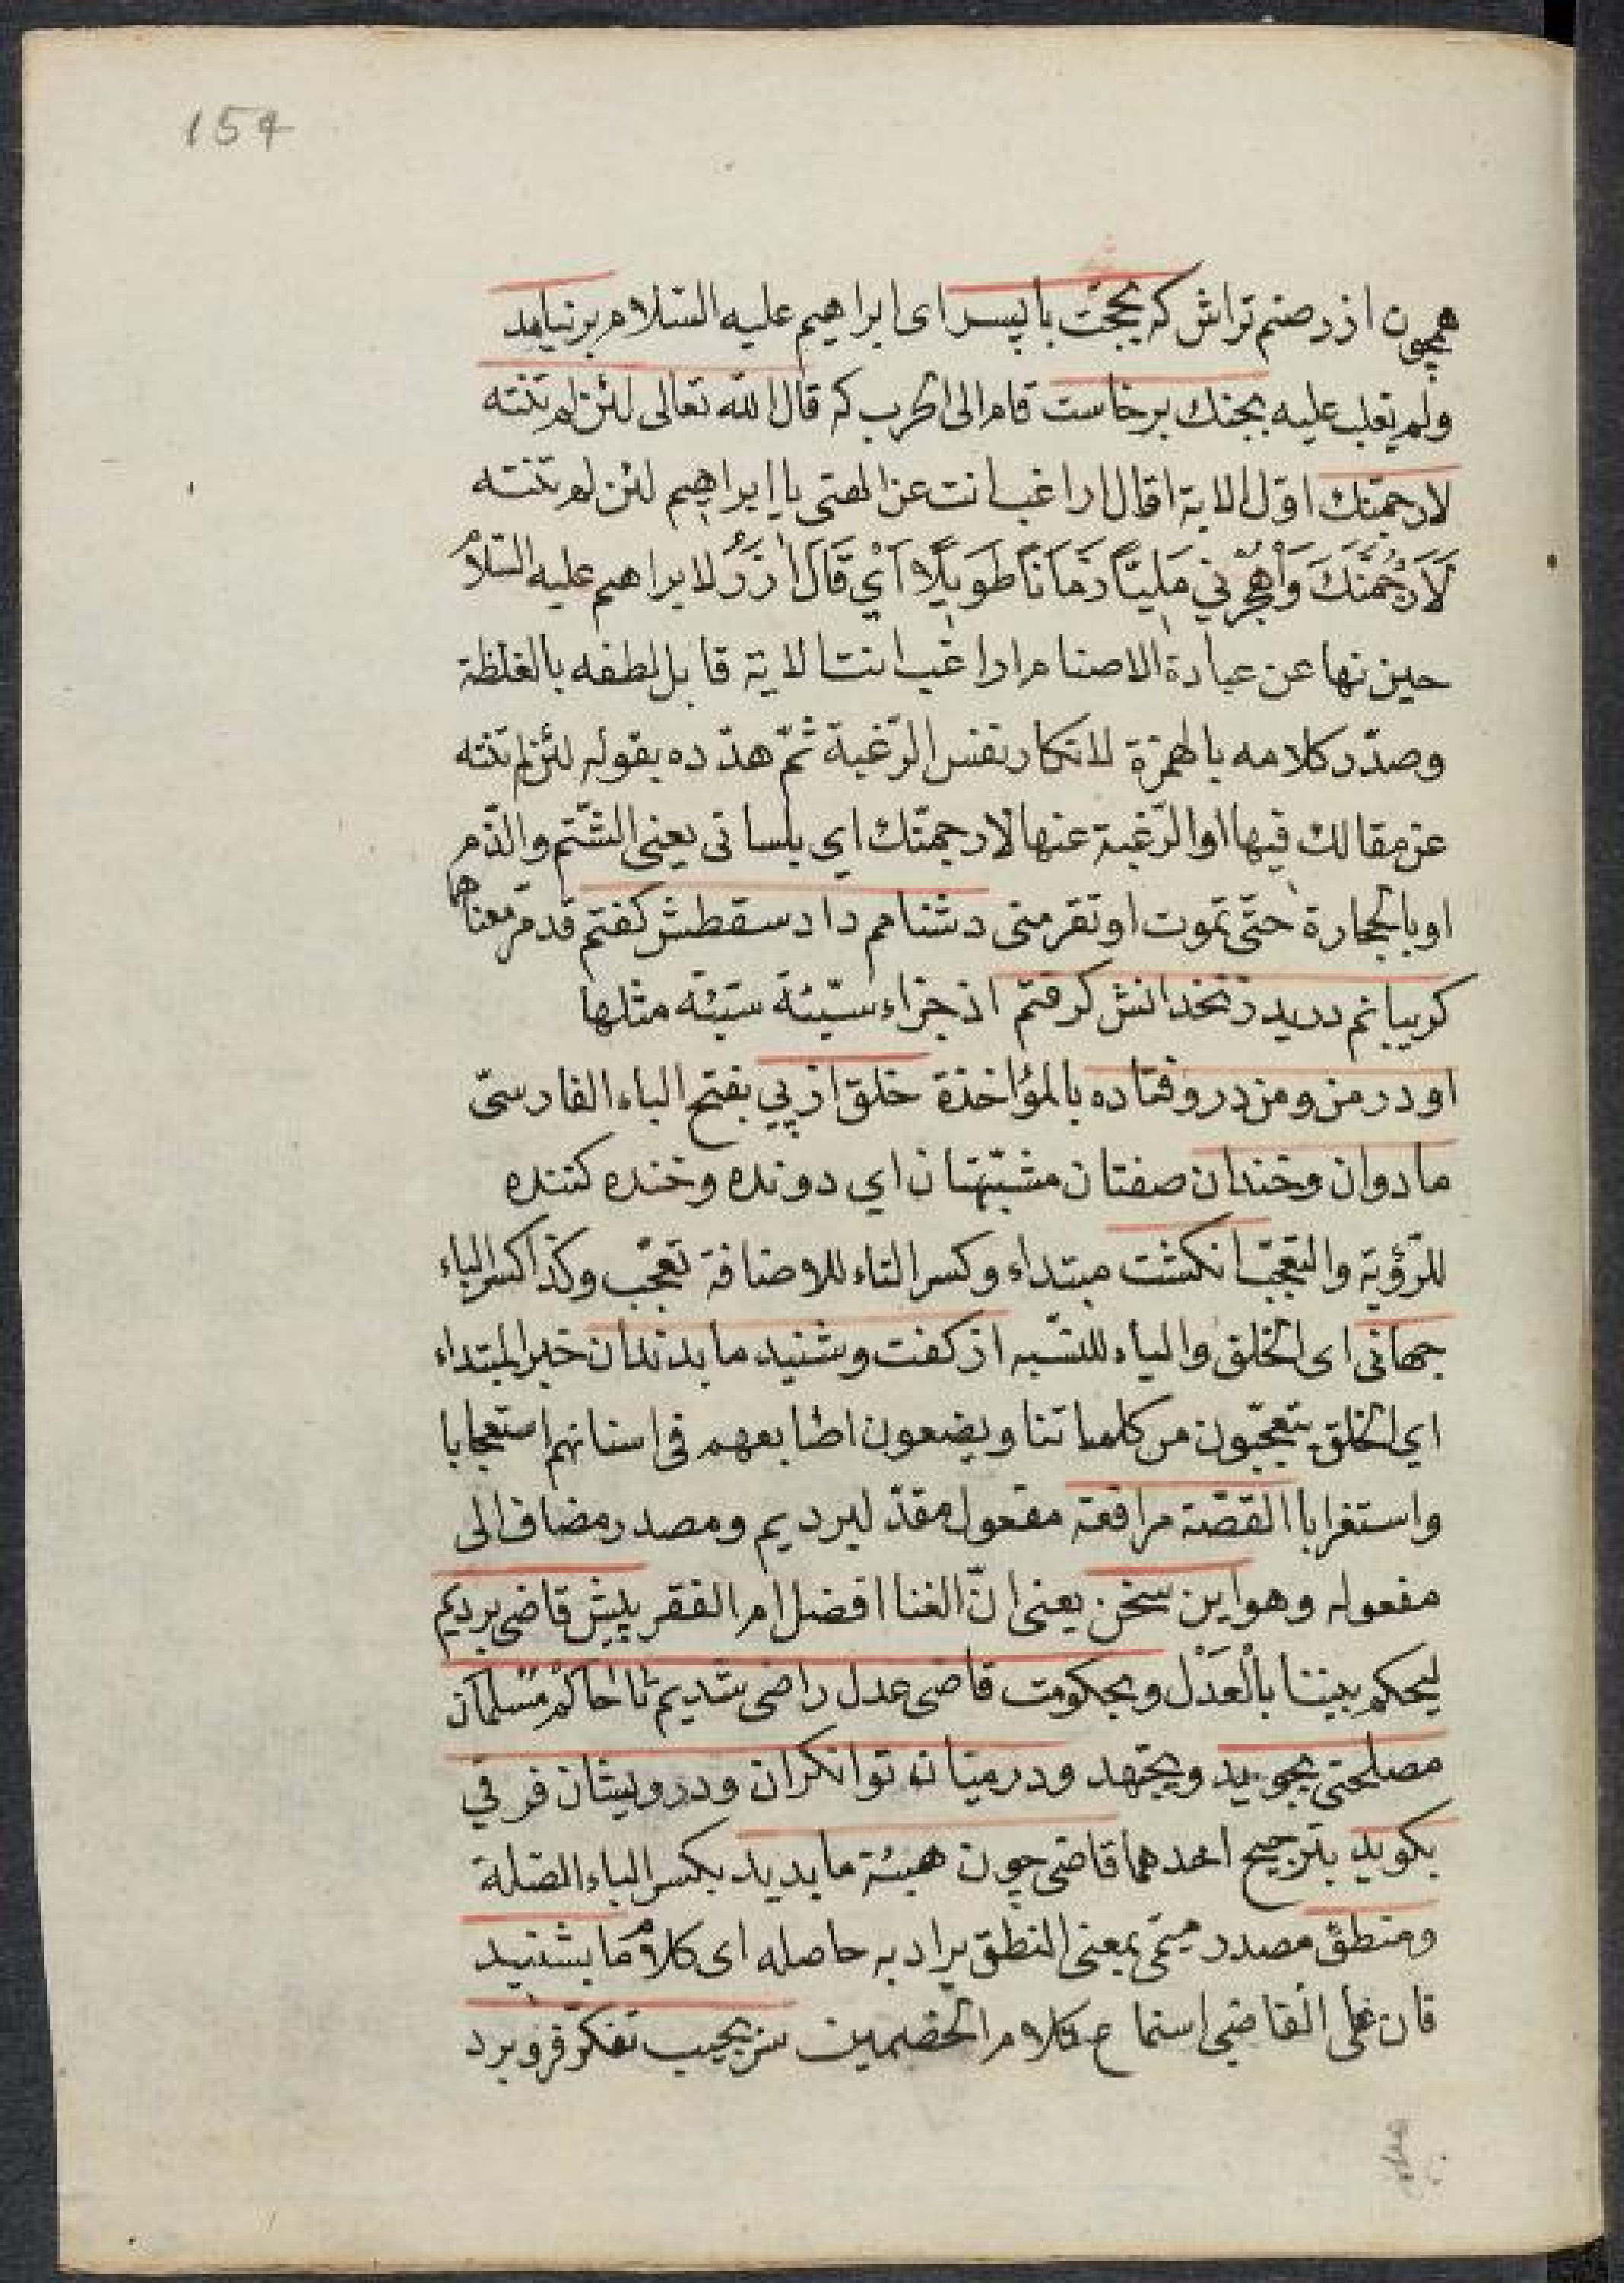 154
همچون ازر صنم تراش که بحجت با پسر ای ابراهیم علیه السّلام برنیامد
ولم یغلب علیه بجنك برخاست قام الی الحرب که قال الله تعالی لئن لم تنته
لارجمنّك اوّل الایة اقال اراغب انت عن الهتی یا ابراهیم لئن لم تنته
لَاَرْجُمَنَّكَ وَاهْجُرْنی مَلِیًّا زَمَانًا طَوِیلًا اَیْ قَالَ اٰزَرُ لابراهیم علیه السّلام
حین نها عن عبادة الاصنام اراغب انت الایة قابل لطفه بالغلظة
وصدّر کلامه بالهمزة لانکار نفس الرّغبة ثمّ هدّده بقوله لئن لم تنته
عن مقالك فیها او الرّغبة عنها لارجمنّك ای بلسانی یعنی الشّتم والذّم
او بالحجارة حتّی تموت او تقر منی دشنامم داد سقطش کفتم قد مرّ معناهما
کریبانم درید زنخدانش کرفتم اذ جزاء سیّئة سیّئة مثلها
او در من ومن درو فتاده بالمؤاخذة خلق از پی بفتح الباء الفارسیّ
ما دوان وخندان صفتان مشبّهتان ای دونده وخنده کننده
للرّؤیة والتعجّب انکشت مبتداء وکسر التاء للاضافة تعجّب وکذا کسر الباء
جهانی ای الخلق والیاء للنّسبه از کفت وشنید ما بدندان خبر المبتداء
ای الخلق یتعجّبون من کلماتنا ویضعون اصابعهم فی اسنانهم استعجابا
واستغرابا القصّة مرافعه مفعول مقدّ لبردیم ومصدر مضاف الی
مفعوله وهو این سخن یعنی انّ الغنا افضل ام الفقر پیش قاضی بردیم
لیحکم بیننا بالْعَدْل وبحکومت قاضی عدل راضی شدیم تا حاکم مُسلمان
مصلحتی بجوید ویجتهد ودر میان توانکران ودرویشان فرقی
بکوید بترجیح احدهما قاضی چون هیئة ما بدید بکسر الباء الصّلة
ومنطق مصدر میمی بمعنی النطق یراد به حاصله ای کلام ما بشنید
فان علی القاضی استماع کلام الخصمین سر بجیب تفکّر فرو برد